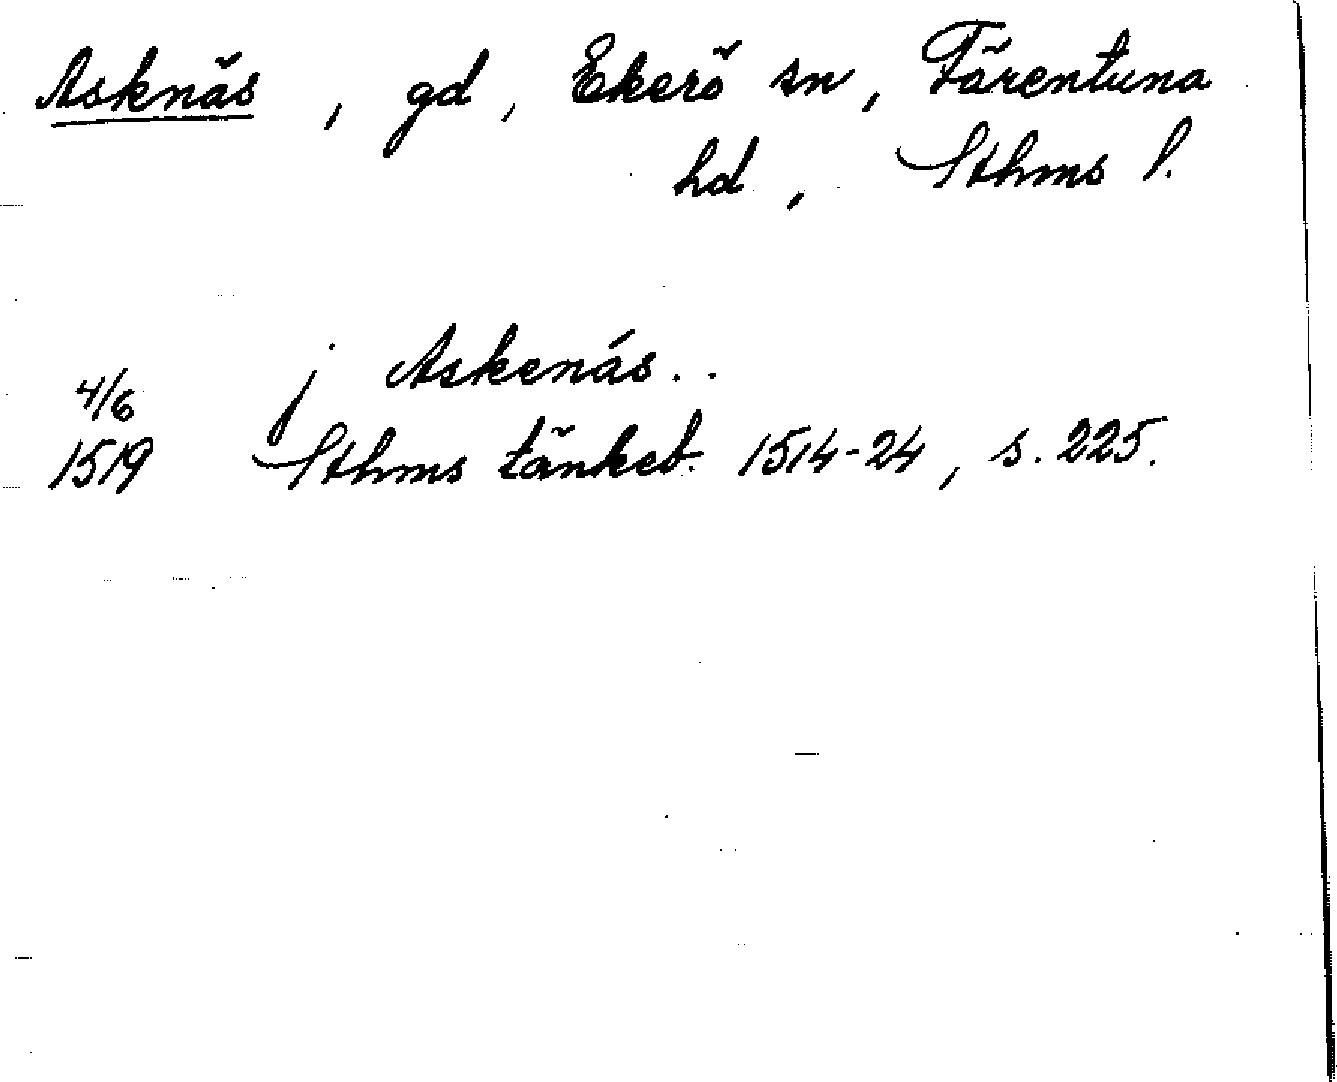 Asknäs, gd, Ekerö sn, Färentuna
hd, Sthms l.
4/6 j Askenás..
1519 Sthms tänkeb. 1514-24, s. 225.